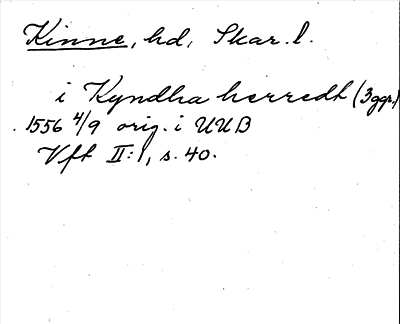 Kinne, hd, Skar. l.
i Kyndha herredh (3 ggr)
1556 4/9 orig. i UUB
Vft II:1, s. 40.